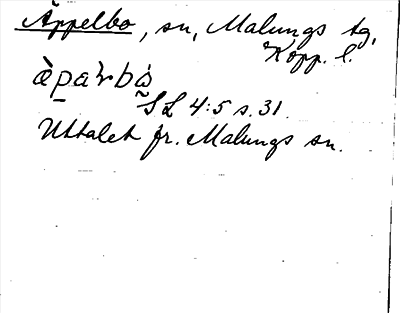 Äppelbo, sn, Malungs tg,
Kopp. l.
SL 4:5 s. 31.
Uttalet fr. Malungs sn.